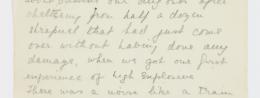 our any guns after
sheltering from half a dozen
shrapnel that had just come
over without having done any
damage, when we got our first
experience of high Explosive
There was a noise like a Train